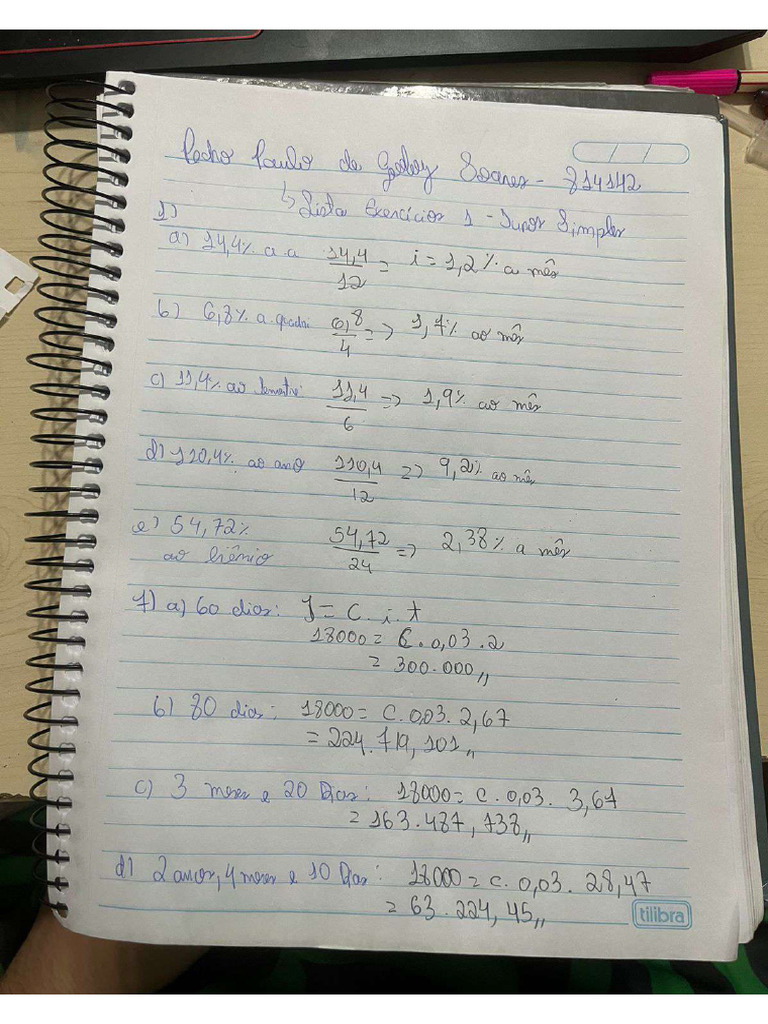 Pedro Paulo de Godoy Soares - 814142
↳ Lista Exercícios 1 - Juros Simples
1)
a) 14,4% a a 14,4/12 = i = 1,2% a mês
b) 6,8% a quadri 6,8/4 => 1,7% ao mês
c) 11,4% ao semestre: 11,4/6 => 1,9% ao mês
d) 110,4% ao ano 110,4/12 => 9,2% ao mês
e) 54,72% 54,72/24 => 2,38% a mês
ao biênio
7) a) 60 dias: J = C.i.t
18000 = C.0,03.2
= 300.000,,
b) 80 dias: 18000 = C.0,03.2,67
= 224.719,101,,
c) 3 meses e 20 Dias: 18000 = C.0,03.3,67
= 163.487,738,,
d) 2 anos, 4 meses e 10 Dias: 18000 = C.0,03.28,47
= 63.224,45,,
tilibra